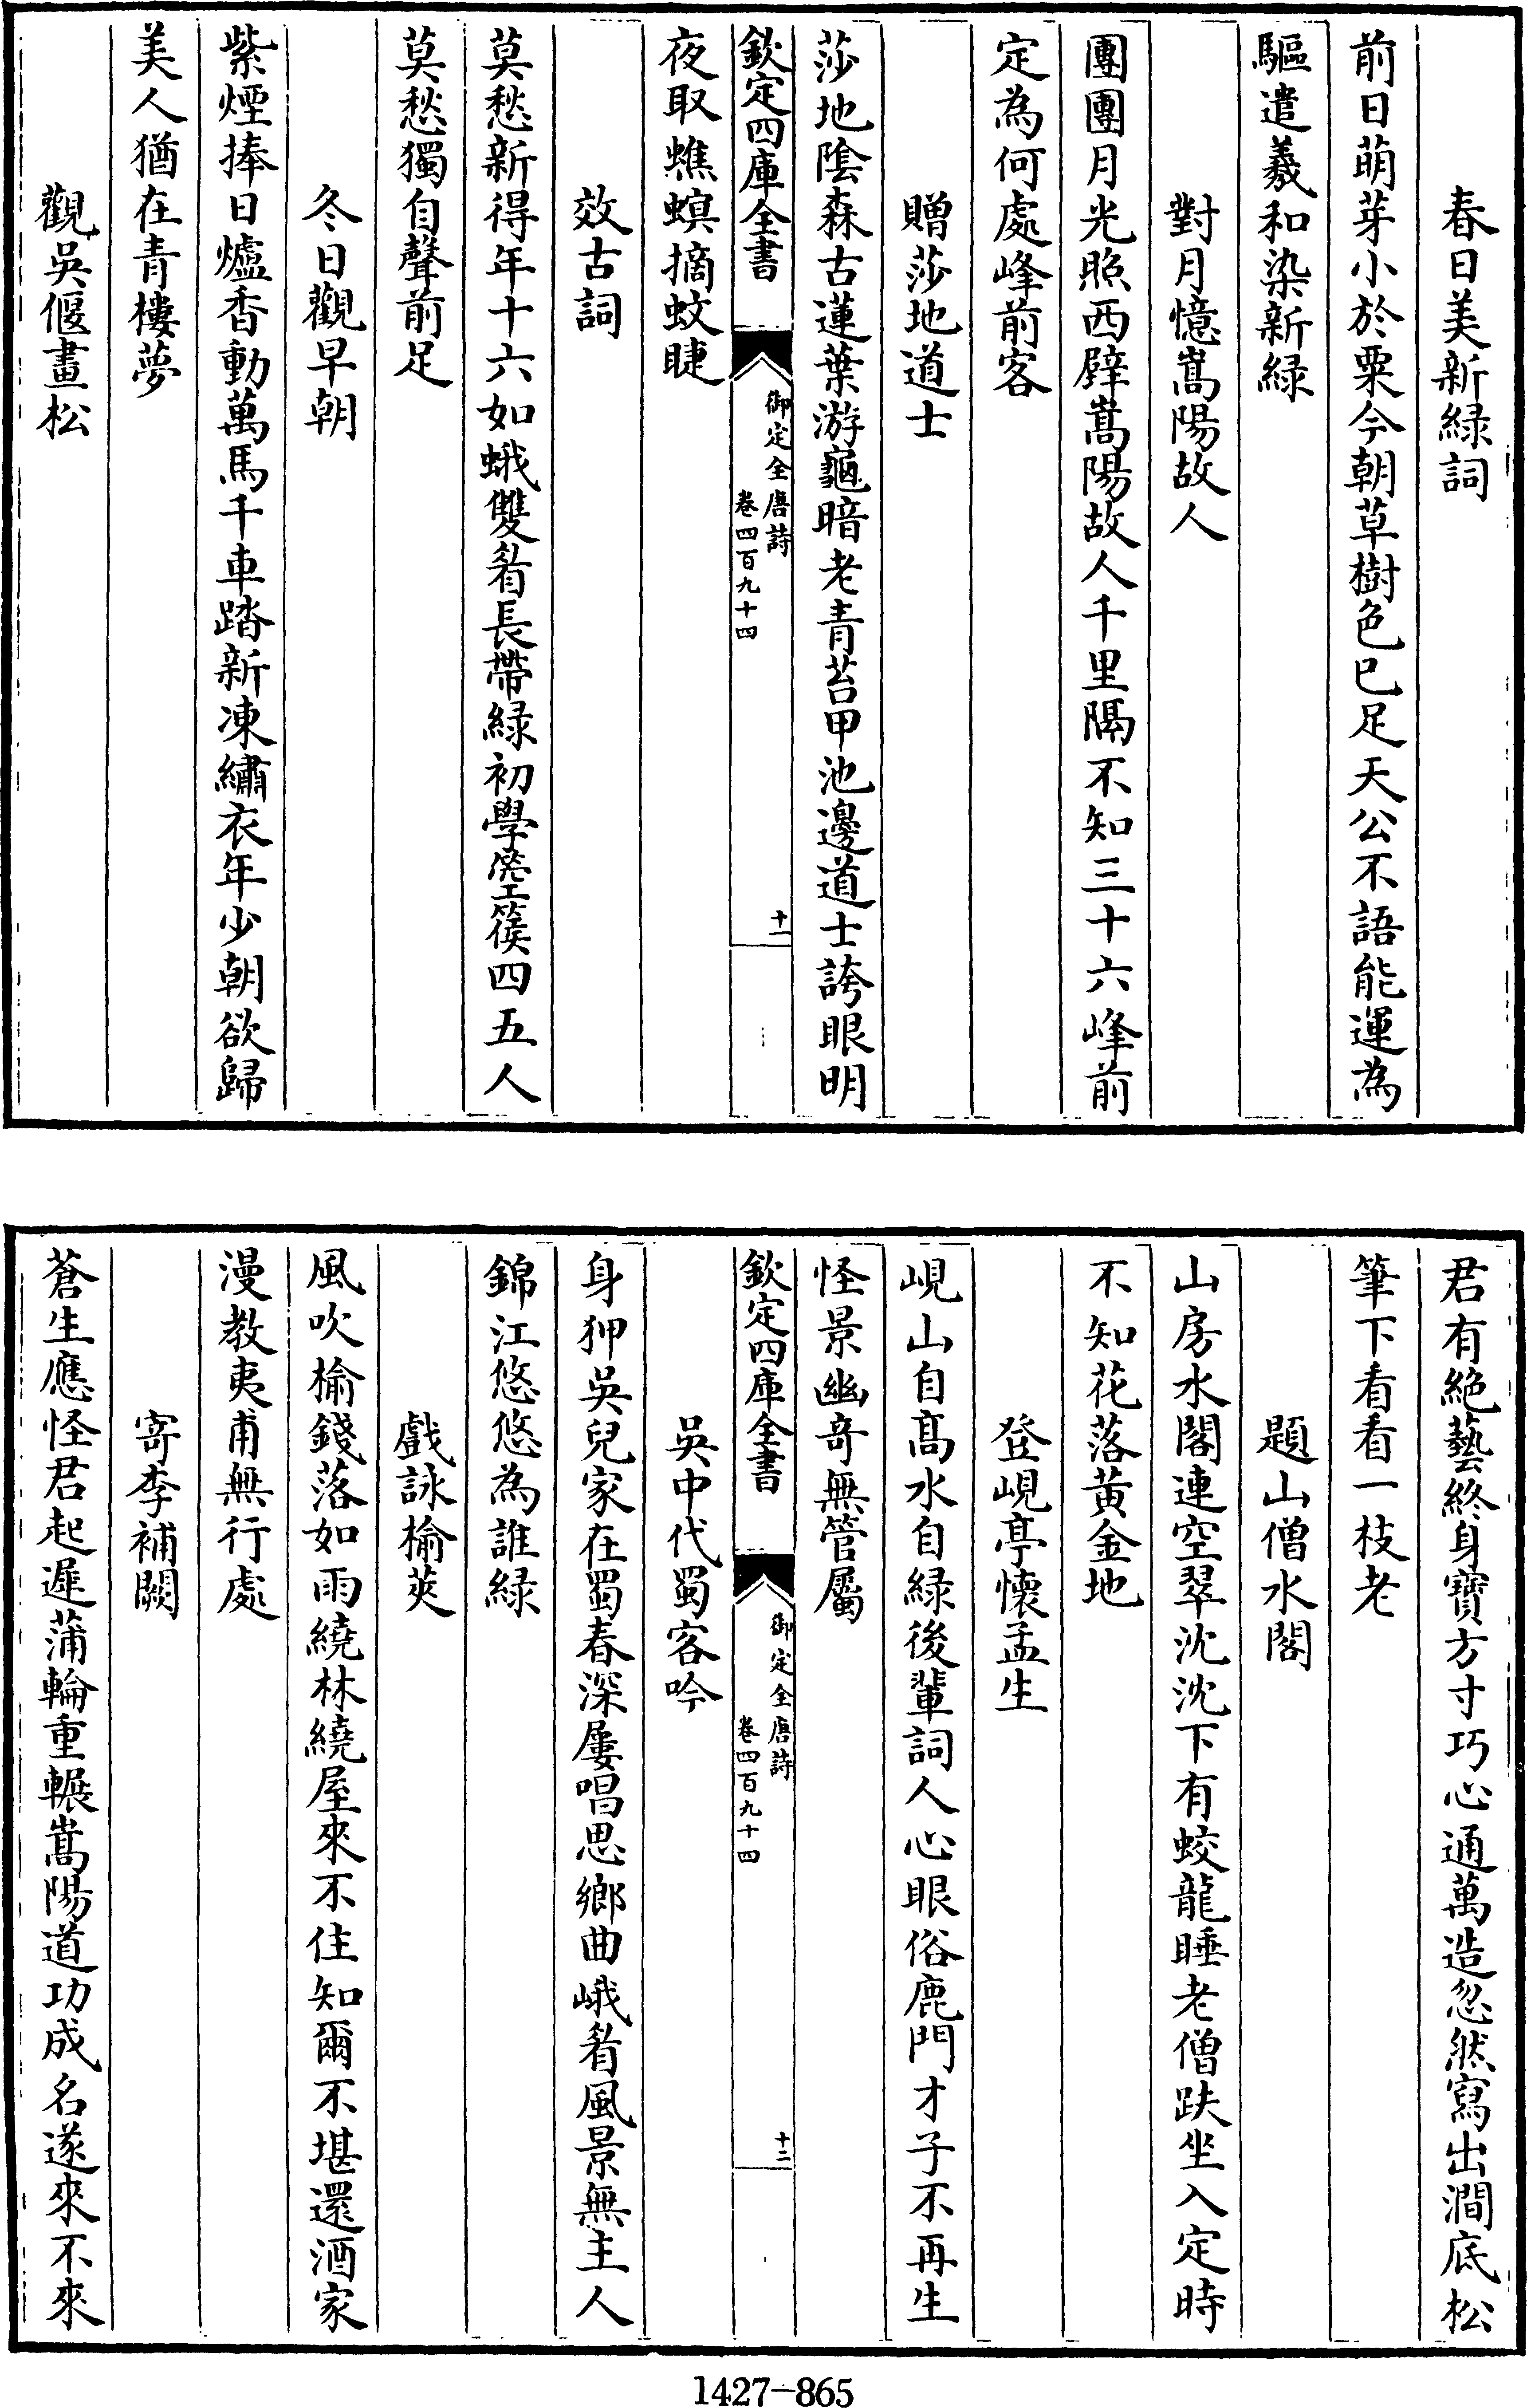 春日美新緑詞
前日萌芽小於粟今朝草樹色已足天公不語能運為
驅遣羲和染新緑
對月憶嵩陽故人
團團月光照西壁嵩陽故人千里隔不知三十六峰前
定為何處峰前客
贈莎地道士
莎地陰森古蓮葉游龜暗老青苔甲池邊道士誇眼明
欽定四庫全書
御定全唐詩
卷四百九十四
十一
夜取蟭螟摘蚊睫
效古詞
莫愁新得年十六如蛾雙眉長帶緑初學箜篌四五人
莫愁獨自聲前足
冬日觀早朝
紫煙捧日爐香動萬馬千車踏新凍繡衣年少朝欲歸
美人猶在青樓夢
觀吳偃畫松
君有絶藝終身寶方寸巧心通萬造忽然寫出澗底松
筆下看看一枝老
題山僧水閣
山房水閣連空翠沈沈下有蛟龍睡老僧趺坐入定時
不知花落黃金地
登峴亭懷孟生
峴山自高水自緑後輩詞人心眼俗鹿門才子不再生
怪景幽奇無管屬
欽定四庫全書
御定全唐詩
卷四百九十四
十二
吳中代蜀客吟
身狎吳兒家在蜀春深屢唱思鄉曲峨眉風景無主人
錦江悠悠為誰緑
戲詠榆莢
風吹榆錢落如雨繞林繞屋來不住知爾不堪還酒家
漫教夷甫無行處
寄李補闕
蒼生應怪君起遲蒲輪重輾嵩陽道功成名遂來不來
1427-865